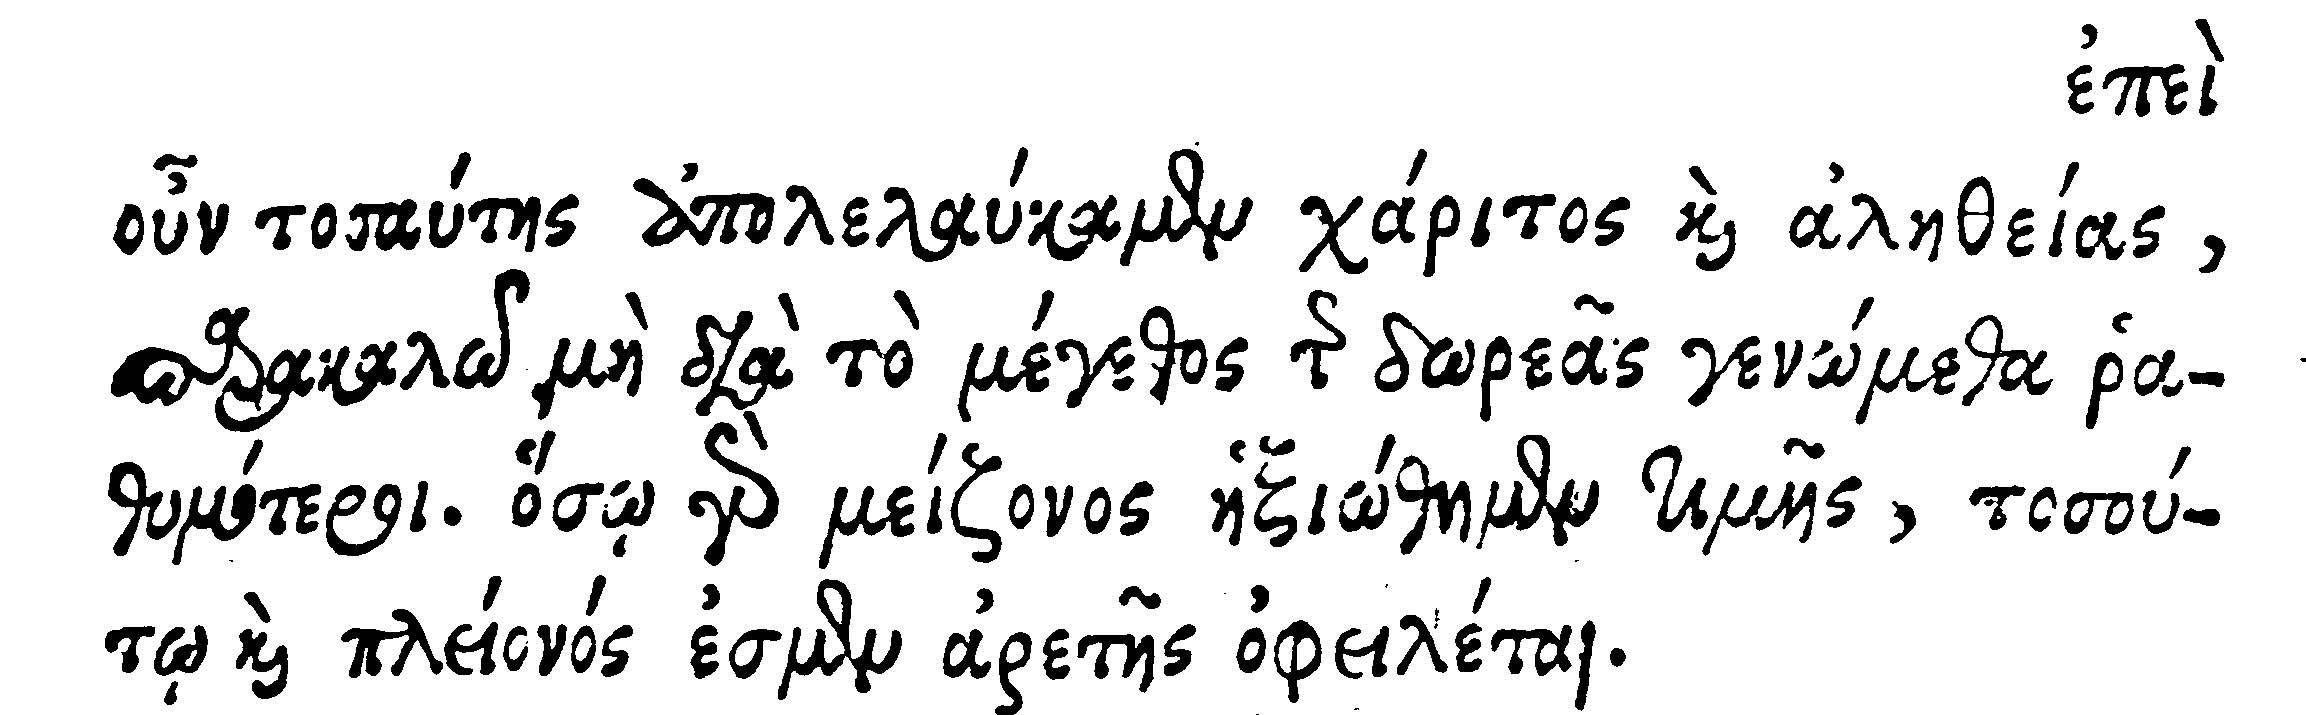 ἐπεὶ
οὖν τοσαύτης ἀπολελαύκαμεν χάριτος καὶ ἀληθείας,
παρακαλῶ μὴ διὰ τὸ μέγεθος τῆς δωρεᾶς γενώμεθα ῥα-
θυμότεροι. ὅσῳ γὰρ μείζονος ἠξιώθημεν τιμῆς, τοσού-
τῳ καὶ πλείονός ἐσμεν ἀρετῆς ὀφειλέται.